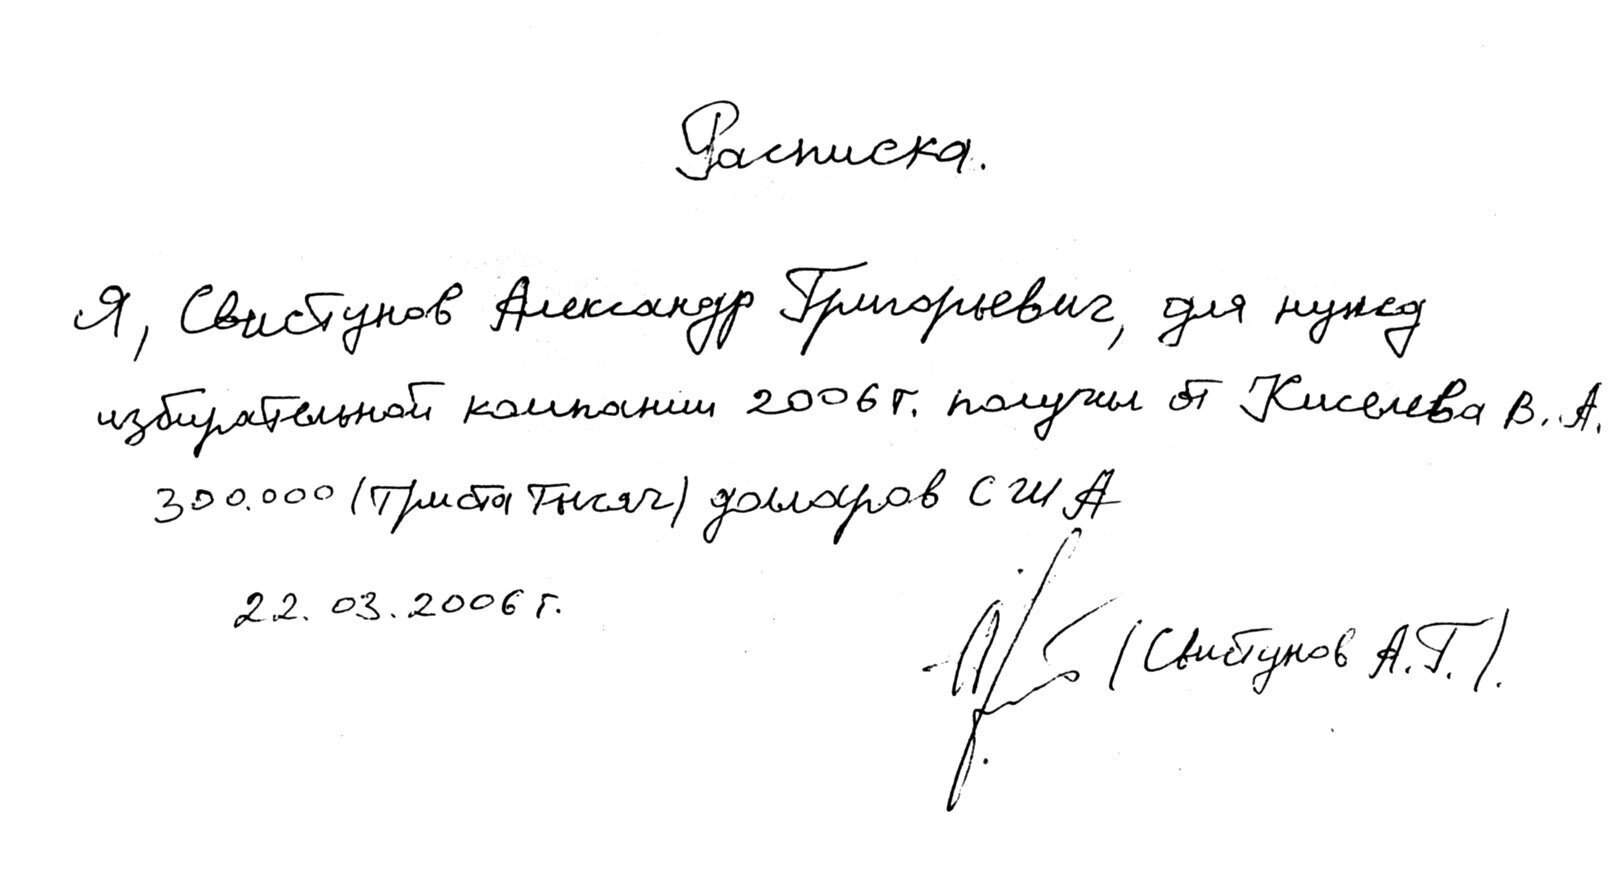 Расписка.
Я, Свистунов Александр Григорьевич, для нужд
избирательной компании 2006г. получил от Киселева В.А.
300.000 (триста тысяч) долларов США
22.03.2006г.
(Свистунов А.Г.).